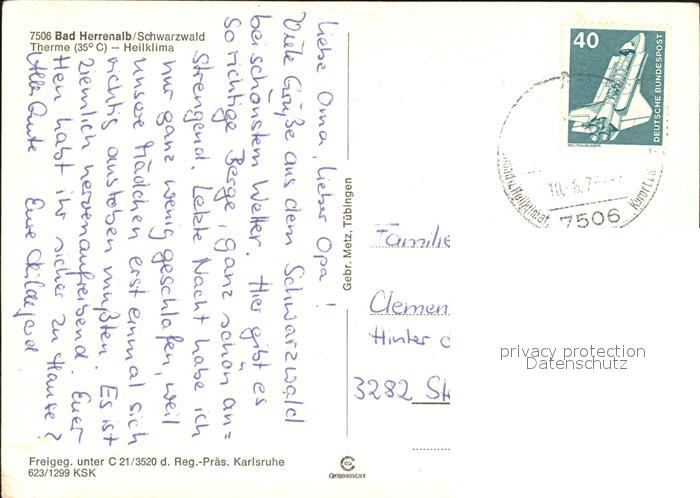 7506 Bad Herrenalb/Schwarzwald
Therme (35° C) – Heilklima
Liebe Oma, lieber Opa!
Viele Grüße aus dem Schwarzwald
bei schönstem Wetter. Hier gibt es
so richtige Berge, ganz schön an=
strengend. Letzte Nacht habe ich
nur ganz wenig geschlafen, weil
unsere Mädchen erst einmal sich
richtig austoben mußten. Es ist
ziemlich nervenaufreibend. Euer
habt ihr sicher zu Hause?
Alles Gute Eure Hildegard
Freigeg. unter C 21/3520 d. Reg.-Präs. Karlsruhe
623/1299 KSK
Gebr. Metz, Tübingen
40
DEUTSCHE BUNDESPOST
WELTRAUMLABOR
10.-8.7
7506
Familie
Clemen
Hinter d
3282 St
privacy protection
Datenschutz